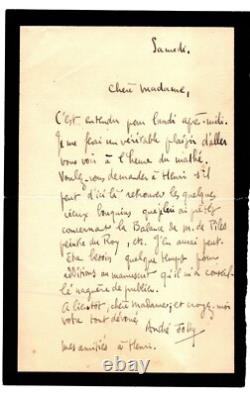 Samedi.
Chère Madame,
C'est entendu pour lundi après-midi.
Je me ferai un véritable plaisir d'aller
vous voir à l'heure du mathé.
Voulez-vous demander à Henri s'il
peut d'ici là retrouver les quelques
vieux bouquins que je lui ai prêtés
concernant la Balance de M. de Piles
peintre du Roy, etc. J'en aurai peut-
être besoin quelque temps pour
additions au manuscrit qu'il m'a conseil-
lé naguère de publier.
A bientôt, chère madame, et croyez-moi
votre tout dévoué
André Joby
mes amitiés à Henri.
© ebay.com